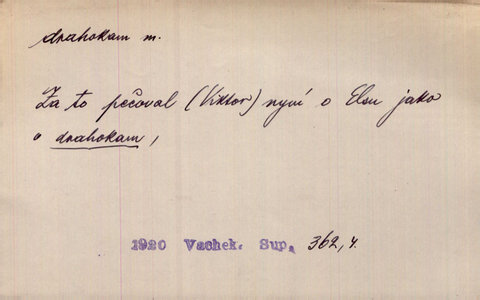 drahokam m.
Za to pečoval (Viktor) nyní o Elsu jako
o drahokam,
1920 Vachek. Sup. 362, 4.